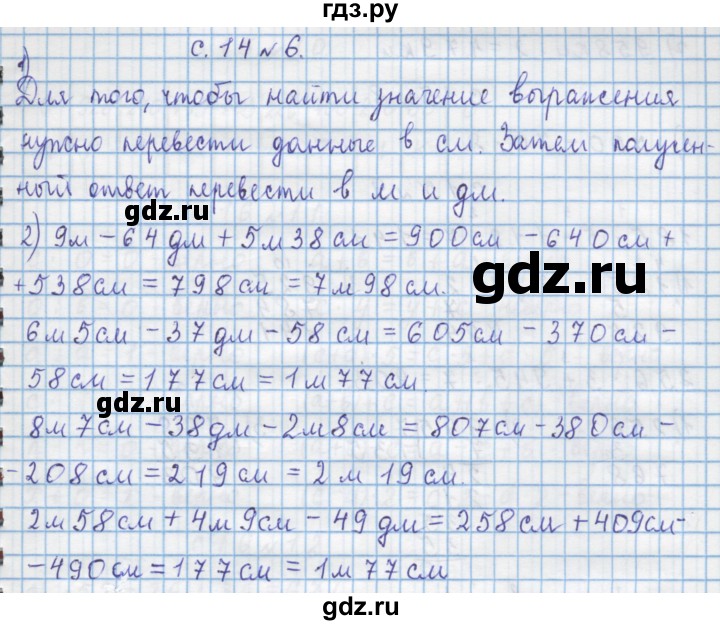 гдз.ру
с. 14 № 6.
1)
Для того, чтобы найти значение выражения
нужно перевести данные в см. Затем получен-
ный ответ перевести в м и дм.
gdz.ru
2) 9м - 64 дм + 5м 38см = 900см - 640см +
gdz.ru
+ 538см = 798см = 7м 98см.
6м 5см - 37дм - 58 см = 605см - 370см -
58см = 177см = 1м 77см.
gdz.ru
8м 7см - 38дм - 2м 8см = 807см - 380см -
- 208см = 219см = 2м 19см.
2м 58см + 4м 9см - 49 дм = 258см + 409см-
- 490см = 177см = 1м 77см
gdz.ru